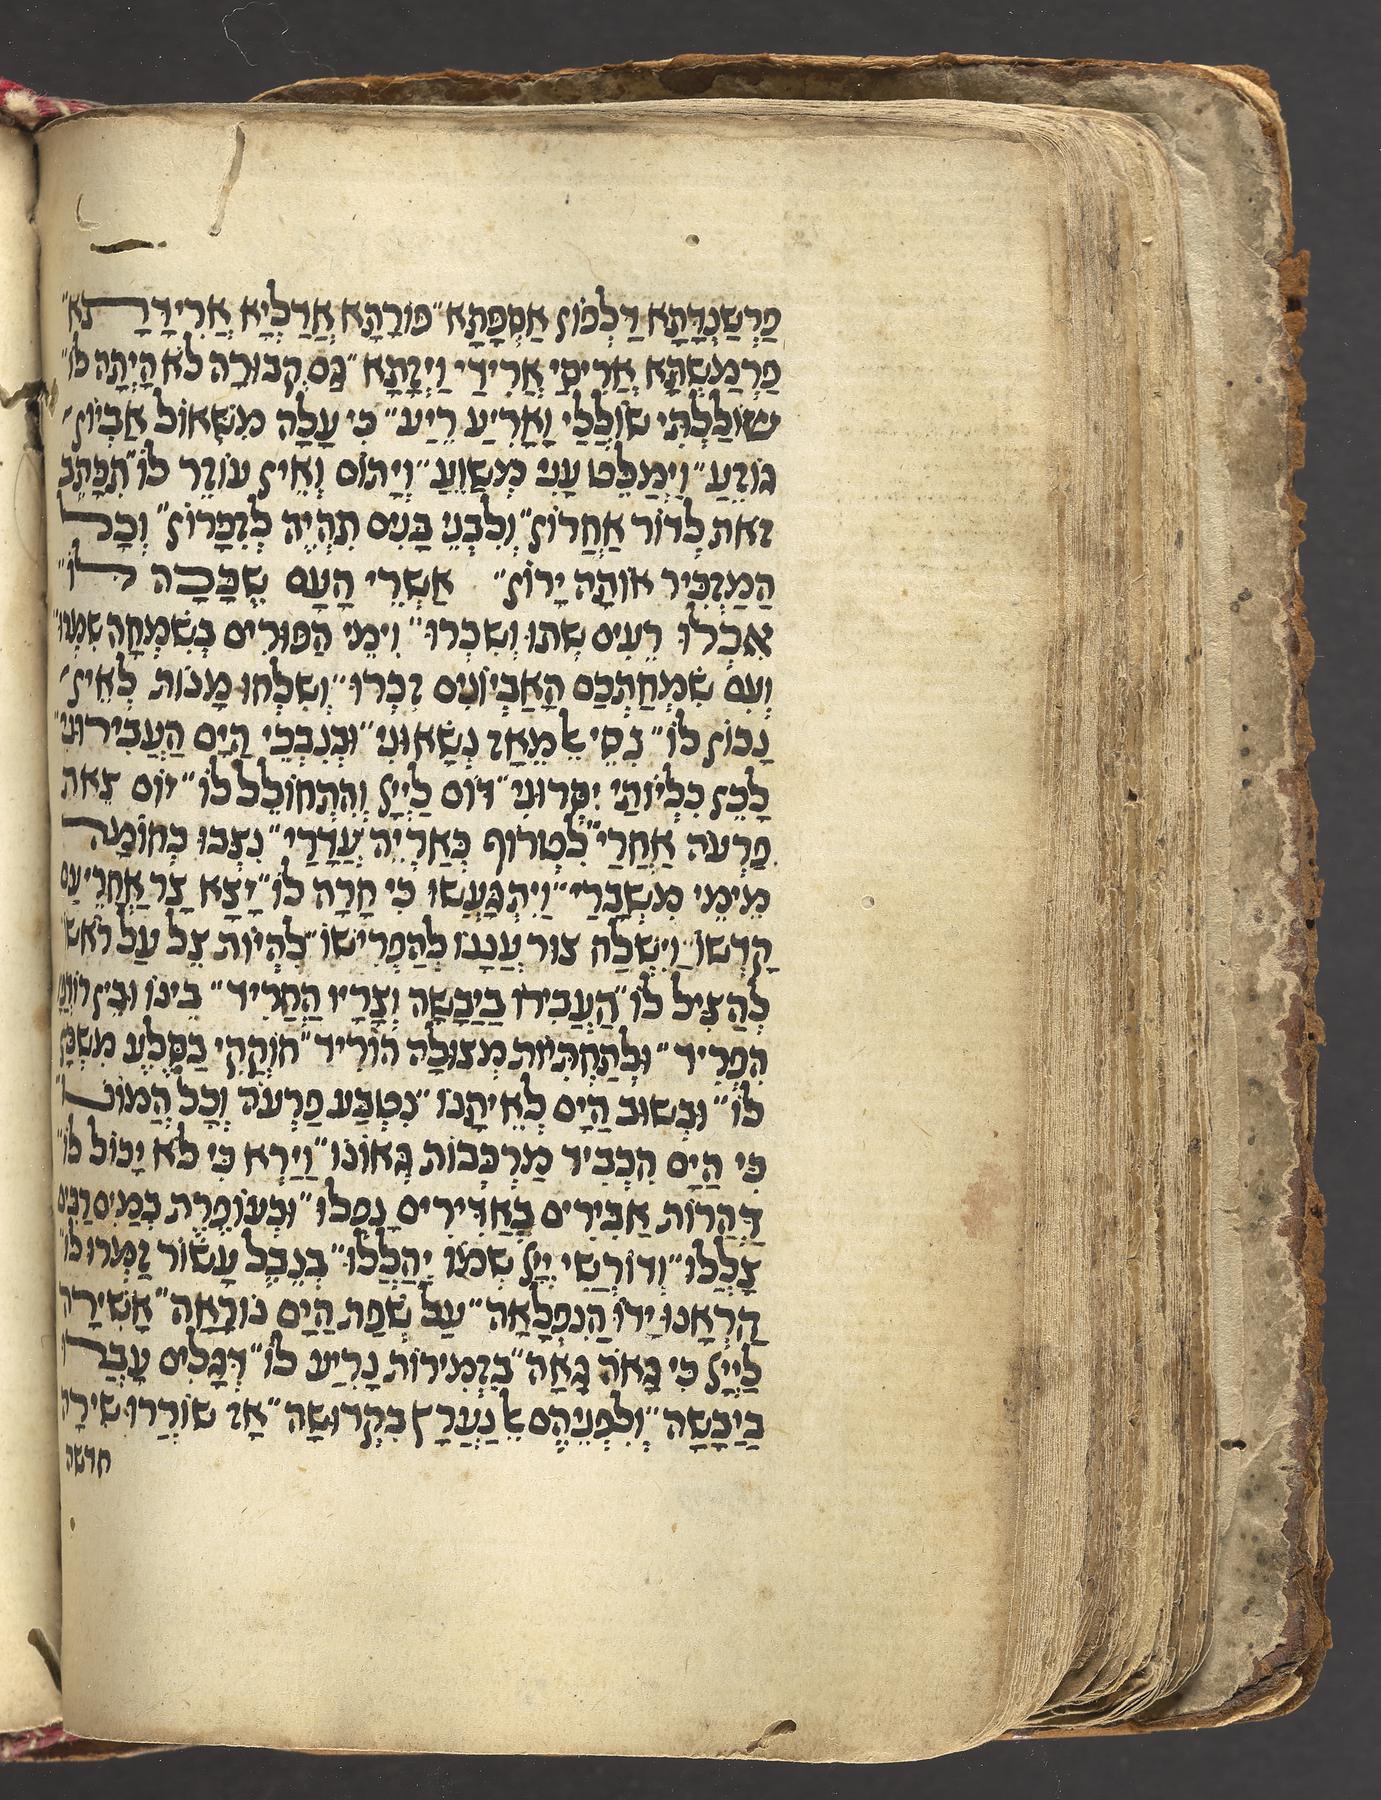 פַרְשַׁנְדָּתָא דַלְפוֹן אַסְפָּתָא״ פּוֹרָתָא אֲדַלְיָא אֲרִידָתָא״
פַרְמַשְׁתָּא אֲרִיסַי אֲרִידַי וַיְזָתָא״ גַּם קְבוּרָה לֹא הָיְתָה לוֹ״
שׁוֹלַלְתִּי שׁוֹלְלַי וָאָרִיעַ רֵיעַ״ כִּי עָלָה מִשְּׁאוֹל אֶבְיוֹן
גּוֹזֵעַ״ וַיְמַלֵּט עָנִי מְשַׁוֵּעַ״ וְיָתוֹם וְאֵין עוֹזֵר לוֹ״ תִּכָּתֵב
זֹאת לְדוֹר אַחֲרוֹן״ וְלִבְנֵי בָּנִים תִּהְיֶה לְזִכָּרוֹן״ וְכָל
הַמַזְכִּיר אוֹתָהּ יָרוֹן״ אַשְׁרֵי הָעָם שֶׁכָּכָה לּוֹ״
אִכְלוּ רֵעִים שְׁתוּ וְשִׁכְרוּ״ וִימֵי הַפּוּרִים בְּשִׂמְחָה שִׁמְרוּ
וְעִם שִׂמְחַתְכֶם הָאֶבְיוֹנִים זִכְרוּ״ וְשִׁלְחוּ מָנוֹת לְאֵין
נָכוֹן לוֹ״ נִסֵּי אֵל מֵאָז נְשָׂאוּנִי״ וּבְנִבְכֵי הַיָּם הֶעֱבִירוּנִי״
לָכֵן כִּלְיוֹתַי יִסְּרוּנִי״ דּוֹם לַיְיָ וְהִתְחוֹלֵל לוֹ״ יוֹם צֵאת
פַּרְעֹה אַחֲרַי״ לִטְרוֹף כְּאַרְיֵה עֲדָרַי״ נִצְּבוּ כְּחוֹמָה
מֵימֵי מִשְׁבָּרַי״ וַיִּתְגָּעֲשׁוּ כִּי חָרָה לוֹ״ יָצָא צָר אַחֲרֵי עַם
קָדְשׁוֹ״ וַיִּשְׁלַח צוּר עֲנָנוֹ לְהַפְרִישׁוֹ״ לִהְיוֹת צֵל עַל רֹאשׁוֹ
לְהַצִּיל לוֹ״ הֶעֱבִירוֹ בַיַבָּשָׁה וְצָרָיו הֶחֱרִיד״ בֵּינוֹ וּבֵין
הִפְרִיד״ וּלְתַחְתִּיּוֹת מְצוּלָה הוֹרִיד״ חוֹקְקִי בַסֶּלַע מִשְׁכָּן
לוֹ״ וּבְשׁוּב הַיָּם לְאֵיתָנוֹ״ נִטְבַּע פַּרְעֹה וְכָל הֲמוֹנוֹ״
כִּי הַיָּם הִכְבִּיד מַרְכְּבוֹת גְּאוֹנוֹ״ וַיַּרְא כִּי לֹא יָכוֹל לוֹ״
דַּהֲרוֹת אַבִּירִים בָּאַדִּירִים נָפְלוּ״ וּכְעוֹפֶרֶת בְּמַיִם רַבִּים
צָלְלוּ״ וְדוֹרְשֵׁי יְיָ שְׁמוֹ יְהַלֵּלוּ״ בְּנֵבֶל עָשׂוֹר זַמְּרוּ לוֹ״
הֶרְאָנוּ יָדוֹ הַנִּפְלָאָה״ עַל שְׂפַת הַיָּם נוֹרָאָה״ אָשִׁירָה
לַיְיָ כִּי גָאֹה גָּאָה״ בִּזְמִירוֹת נָרִיעַ לוֹ״ דְּגָלִים עָבְרוּ
בַיַבָּשָׁה״ וְלִפְנֵיהֶם אֵל נַעֲרָץ בִּקְדוּשָׁה״ אָז שׁוֹרְרוּ שִׁירָה
חדשה